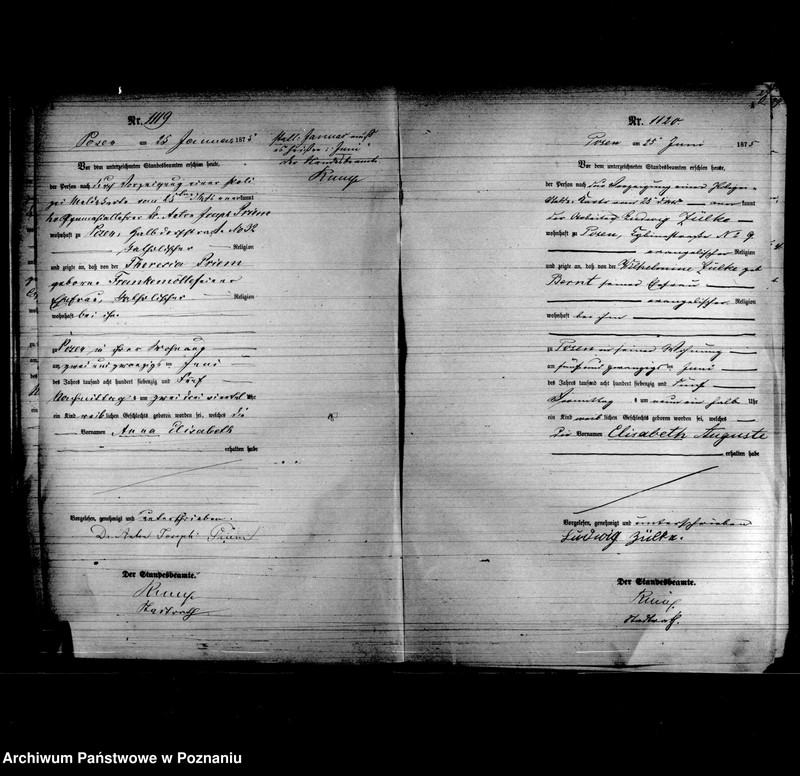 Nr. 1119
Posen am 25 Januar 1875
Statt Januar muß
es heißen: "Juni"
Der Standesbeamte
Kump
Vor dem unterzeichneten Standesbeamten erschien heute,
der Person nach durch Vorzeigung einer Poli
zei Meldekarte vom anerkannt
Dr. Anton Joseph Priem
wohnhaft zu Posen, No 32
katholischer Religion
und zeigte an, daß von der Theresia Priem
geborene Frankemöllefeiner
Ehefrau, katholischer Religion
wohnhaft bei ihm
zu Posen in ihrer Wohnung
am zwei und zwanzigsten Juni
des Jahres tausend acht hundert siebenzig und fünf
Nachmittags um zwei drei viertel Uhr
ein Kind weiblichen Geschlechts geboren worden sei, welches die
Vornamen Anna Elisabeth
erhalten habe
Vorgelesen, genehmigt und unterschrieben.
Dr. Anton Joseph Priem
Der Standesbeamte.
Kump
Stadtrath
Nr. 1120
Posen am 25 Juni 1875
Vor dem unterzeichneten Standesbeamten erschien heute,
der Person nach durch Vorzeigung einer
Melde Karte vom 25 anerkannt
der Arbeiter Ludwig Zülke
wohnhaft zu Posen, No 9
evangelischer Religion
und zeigte an, daß von der Wilhelmine Zülke geb
Bernt seiner Ehefrau
evangelischer Religion
wohnhaft bei ihm
zu Posen in seiner Wohnung
am fünf und zwanzigsten Juni
des Jahres tausend acht hundert siebenzig und fünf
Vormittag s um neun ein halb Uhr
ein Kind weiblichen Geschlechts geboren worden sei, welches
die Vornamen Elisabeth Auguste
erhalten habe
Vorgelesen, genehmigt und unterschrieben
Ludwig Zülke.
Der Standesbeamte.
Kump
Stadtrath.
Archiwum Państwowe w Poznaniu